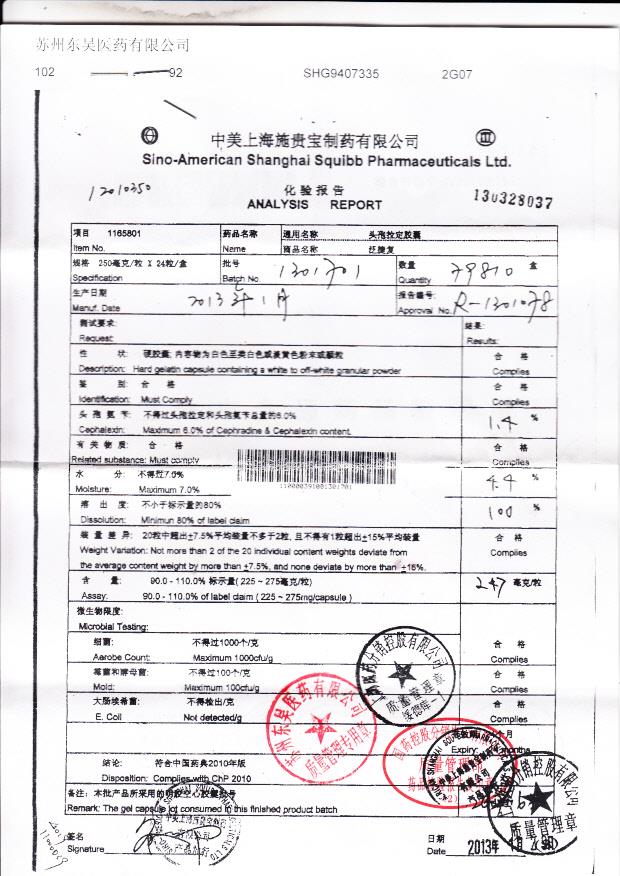 苏州东吴医药有限公司
102 92 SHG9407335 2G07
中美上海施贵宝制药有限公司
Sino-American Shanghai Squibb Pharmaceuticals Ltd.
12010350
化验报告
ANALYSIS REPORT
130328037
项目 1165801 药品名称 通用名称 头孢拉定胶囊
Item No. Name 商品名称 泛捷复
规格 250毫克/粒 X 24粒/盒 批号 1301701 数量 79810 盒
Specification Batch No. Quantity
生产日期 2013年1月 报告编号: R-1301078
Manuf. Date Approval No.
测试要求: 结果:
Request: Results:
性 状: 硬胶囊,内容物为白色至类白色或淡黄色粉末或颗粒 合 格
Description: Hard gelatin capsule containing a white to off-white granular powder Complies
鉴 别: 合 格 合 格
Identification: Must Comply Complies
头孢氨苄: 不得过头孢拉定和头孢氨苄总量的6.0% 1.4 %
Cephalexin: Maximum 6.0% of Cephradine & Cephalexin content.
有关物质: 合 格 合 格
Related substance: Must comply Complies
水 分: 不得过7.0% 4.4 %
Moisture: Maximum 7.0%
110000391081301701
溶 出 度: 不小于标示量的80% 100 %
Dissolution: Minimun 80% of label claim
装量差异: 20粒中超出±7.5%平均装量不多于2粒, 且不得有1粒超出±15%平均装量 合 格
Weight Variation: Not more than 2 of the 20 individual content weights deviate from Complies
the average content weight by more than ±7.5%, and none deviate by more than ±15%.
含 量: 90.0 - 110.0% 标示量(225 ~ 275毫克/粒) 247 毫克/粒
Assay: 90.0 - 110.0% of label claim ( 225 ~ 275mg/capsule )
微生物限度:
Microbial Testing:
细菌: 不得过1000个/克 合 格
Aerobe Count: Maximum 1000cfu/g Complies
霉菌和酵母菌: 不得过100个/克 合 格
Mold: Maximum 100cfu/g Complies
大肠埃希菌: 不得检出/克 合 格
E. Coli Not detected/g Complies
Expiry: months
结论: 符合中国药典2010年版
Disposition: Complies with ChP 2010
备注: 本批产品所采用的明胶空心胶囊批号
Remark: The gel capsule lot consumed to this finished product batch
签名
Signature
日期
Date 2013年1月
苏州东吴医药有限公司
质量管理专用章
质量管理章
质量管理章